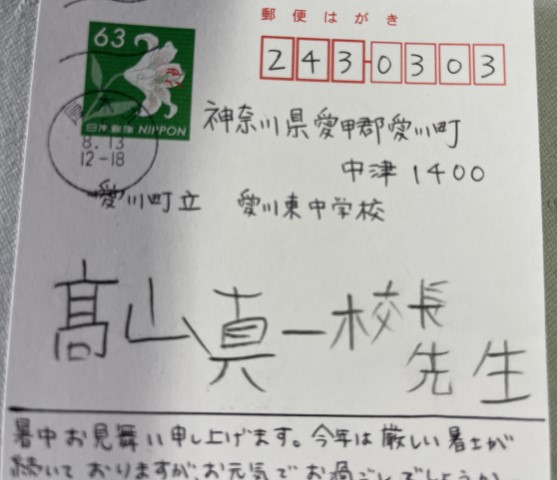 郵便はがき
63
243-0303
日本郵便 NIPPON
8.13
12-18
神奈川県愛甲郡愛川町
中津1400
愛川町立 愛川東中学校
髙山真一校長
先生
暑中お見舞い申し上げます。今年は厳しい暑さが
続いておりますが、お元気でお過ごしでしょうか。